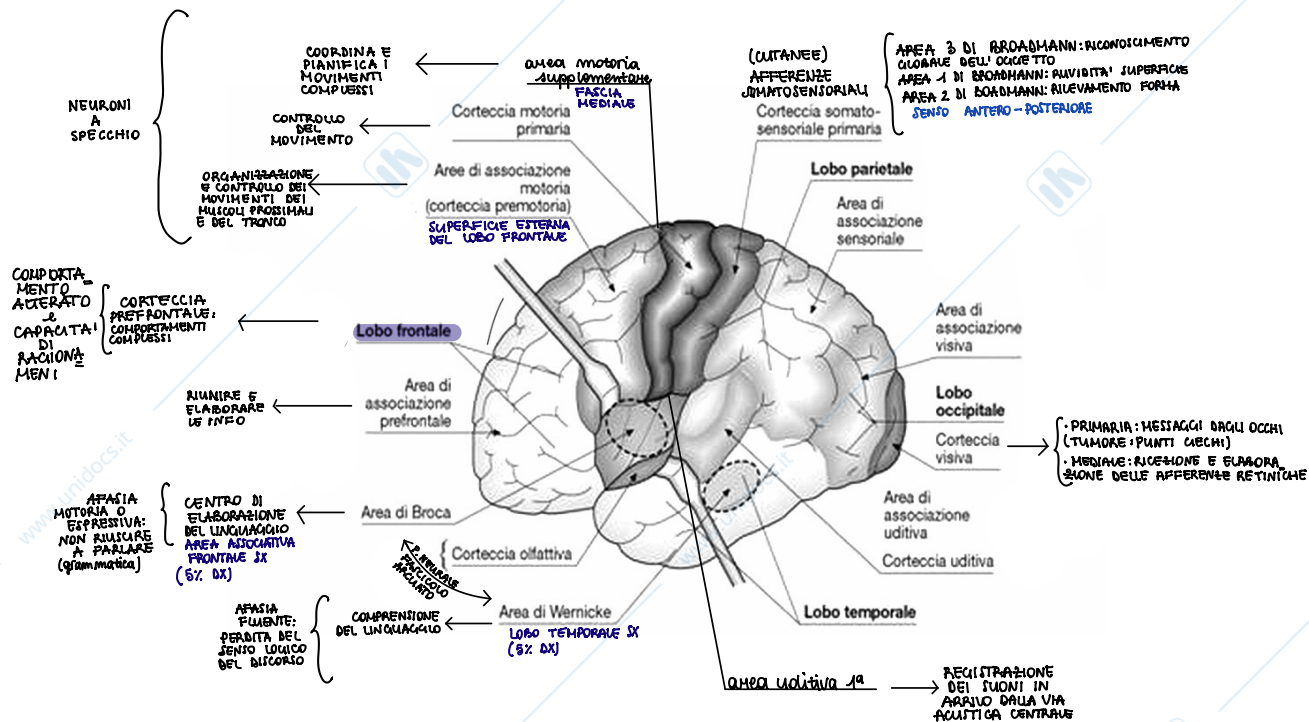 NEURONI
A
SPECCHIO
COORDINA E
PIANIFICA I
MOVIMENTI
COMPLESSI
area motoria
supplementare
FASCIA
MEDIALE
(CUTANEE)
AFFERENZE
SOMATOSENSORIALI
AREA 3 DI BROADMANN: RICONOSCIMENTO
GLOBALE DELL'OGGETTO
AREA 1 DI BROADMANN: RUVIDITA' SUPERFICIE
AREA 2 DI BOADMANN: RILEVAMENTO FORMA
SENSO ANTERO-POSTERIORE
CONTROLLO
DEL
MOVIMENTO
Corteccia motoria
primaria
Corteccia somato-
sensoriale primaria
Lobo parietale
ORGANIZZAZIONE
E CONTROLLO DEI
MOVIMENTI DEI
MUSCOLI PROSSIMALI
E DEL TRONCO
Aree di associazione
motoria
(corteccia premotoria)
SUPERFICIE ESTERNA
DEL LOBO FRONTALE
Area di
associazione
sensoriale
COMPORTA-
MENTO
ALTERATO
e
CAPACITA'
DI
RAGIONA-
MENI
CORTECCIA
PREFRONTALE:
COMPORTAMENTI
COMPLESSI
Lobo frontale
Area di
associazione
visiva
RIUNIRE E
ELABORARE
LE INFO
Area di
associazione
prefrontale
Lobo
occipitale
Corteccia
visiva
· PRIMARIA: MESSAGGI DAGLI OCCHI
(TUMORE: PUNTI CIECHI)
· MEDIALE: RICEZIONE E ELABORA-
ZIONE DELLE AFFERENZE RETINICHE
www.unidocs.it
AFASIA
MOTORIA O
ESPRESSIVA:
NON RIUSCIRE
A PARLARE
(grammatica)
CENTRO DI
ELABORAZIONE
DEL LINGUAGGIO
AREA ASSOCIATIVA
FRONTALE SX
(5% DX)
Area di Broca
Area di
associazione
uditiva
Corteccia olfattiva
Corteccia uditiva
P. NEURALE
FASCICOLO
ARCUATO
AFASIA
FLUENTE:
PERDITA DEL
SENSO LOGICO
DEL DISCORSO
COMPRENSIONE
DEL LINGUAGGIO
Area di Wernicke
LOBO TEMPORALE SX
(5% DX)
Lobo temporale
area uditiva 1ª
REGISTRAZIONE
DEI SUONI IN
ARRIVO DALLA VIA
ACUSTICA CENTRALE